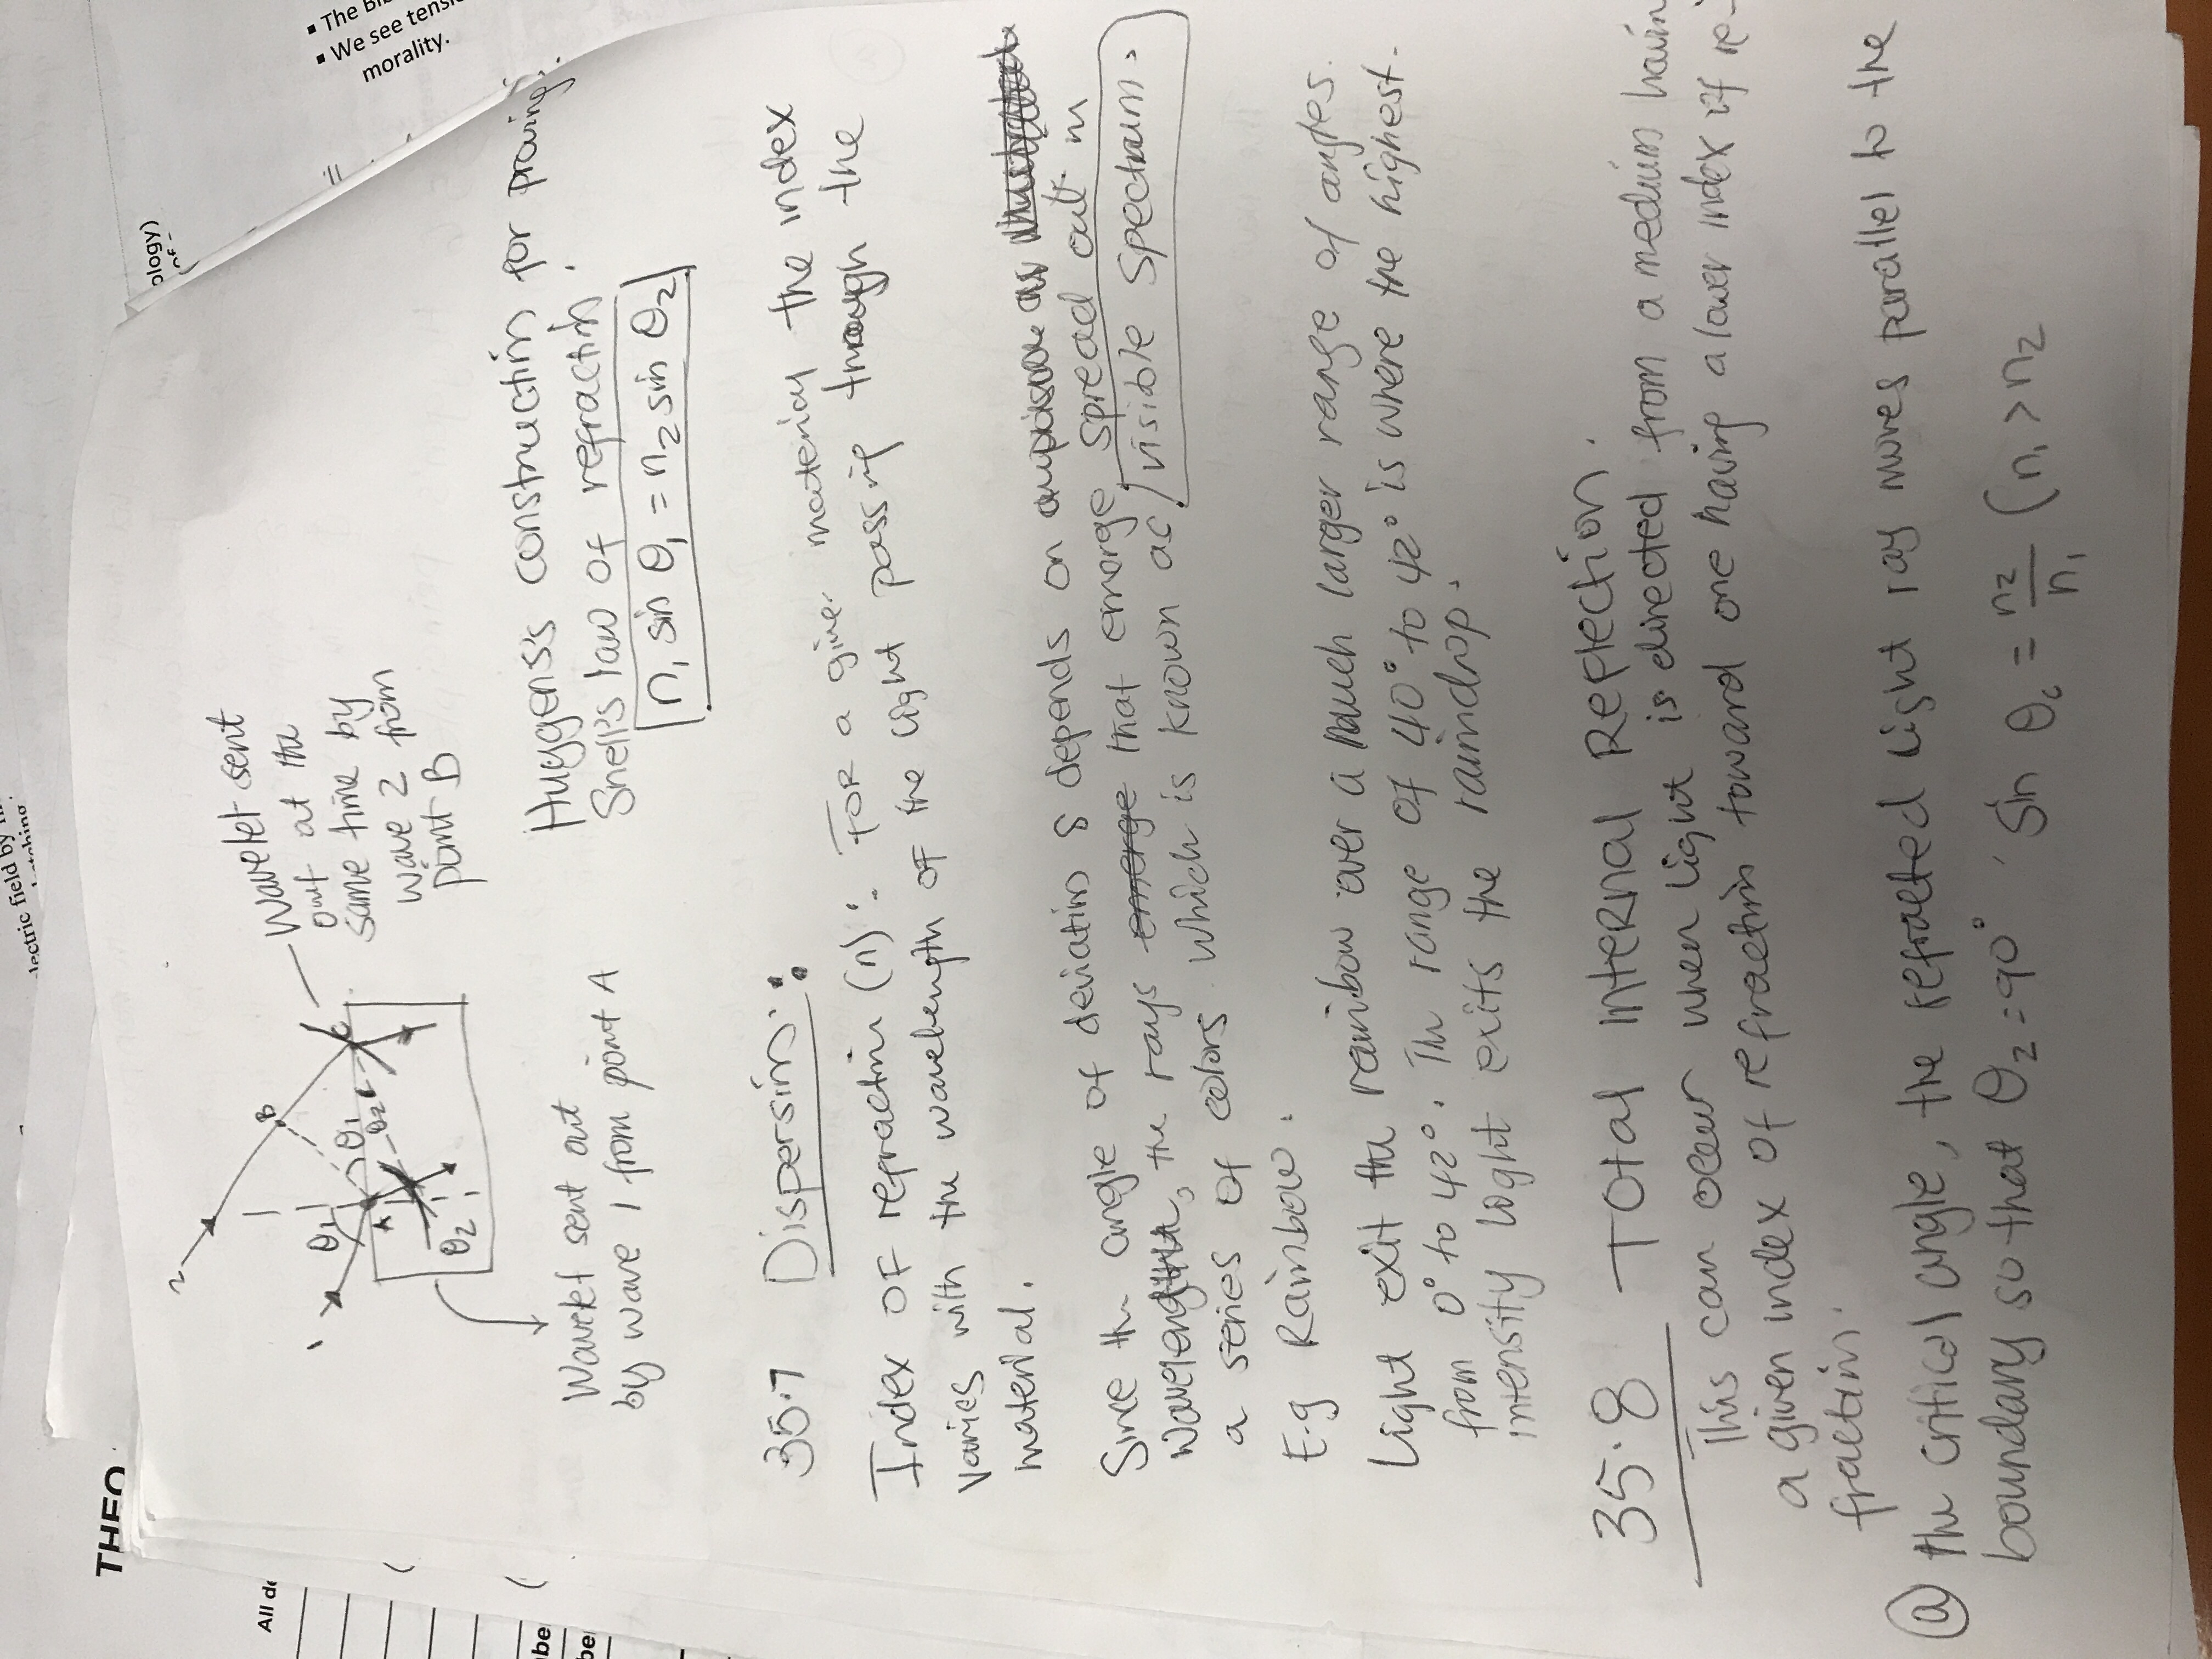 ▪ The Bi
▪ We see tensi
morality.
ology)
lectric field by
THEO
All de
2
1
B
θ1
A
θ1
θ2
C
θ2
wavelet sent
out at the
same time by
wave 2 from
point B
Wavelet sent out
by wave 1 from point A
Huygens's construction for proving
Snell's law of refraction:
n1 sin θ1 = n2 sin θ2
35.7 Dispersion:
Index of refraction (n): For a given material the index
varies with the wavelength of the light passing through the
material.
Since the angle of deviation δ depends on
wavelength, the rays emerge that emerge spread out in
a series of colors which is known as visible spectrum.
E.g Rainbow.
Light exit the rainbow over a much larger range of angles.
from 0° to 42°. The range of 40° to 42° is where the highest.
intensity light exits the raindrop.
35.8 Total Internal Reflection.
This can occur when light is directed from a medium havin
a given index of refraction toward one having a lower index of re-
fraction.
(a) the critical angle, the refracted light ray moves parallel to the
boundary so that θ2 = 90° sin θc = n2/n1 (n1 > n2